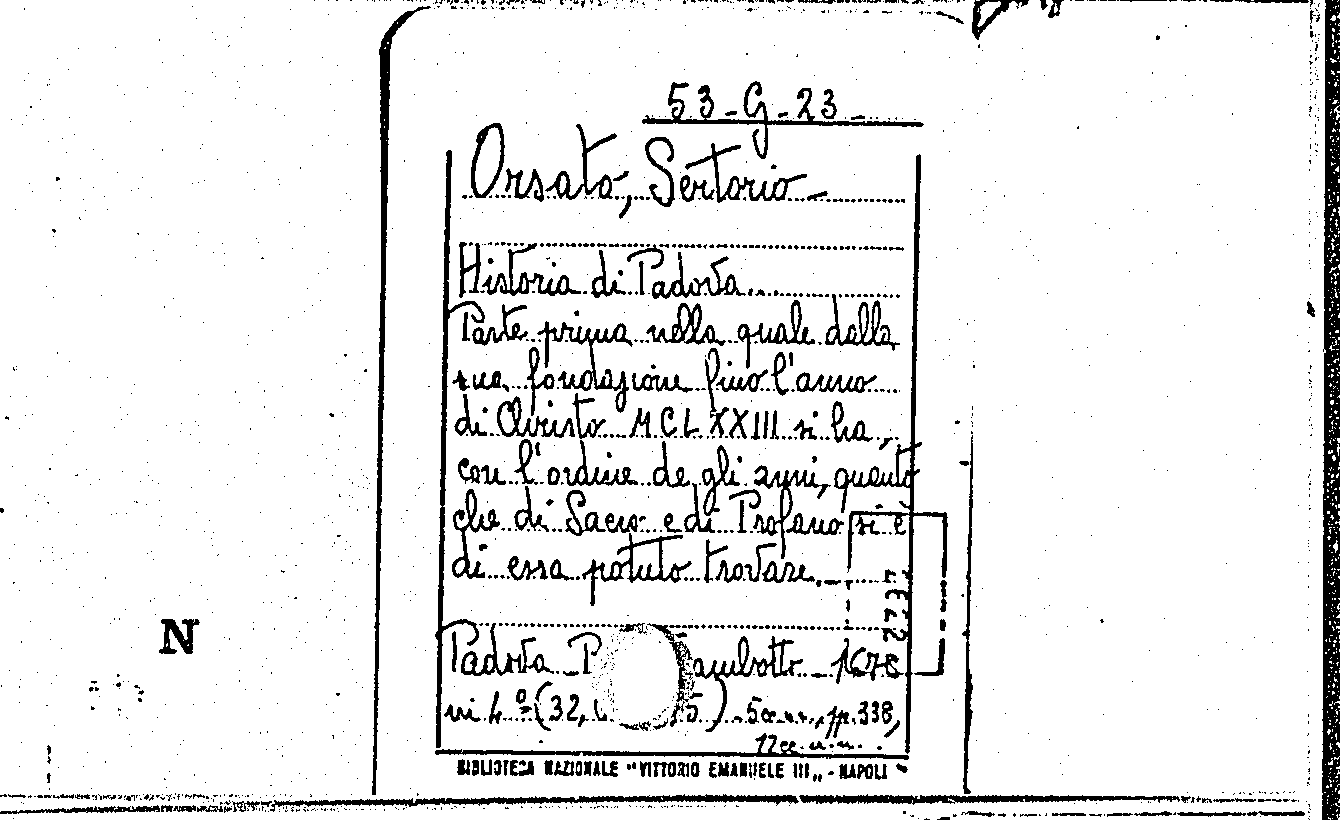 53-G-23
Orsato, Sertorio-
Historia di Padova...
Parte prima nella quale dalla
sua fondazione fino l'anno
di Christo MCLXXIII si ha,
con l'ordine de gli anni, quanto
che di Sacro e di Profano si è
di essa potuto trovare.
Padova P ambotto 1678
in 4º (32, 5) 5 cc. n. n., pp. 338,
12 cc. n. n.
BIBLIOTECA NAZIONALE "VITTORIO EMANUELE III„ - NAPOLI
N